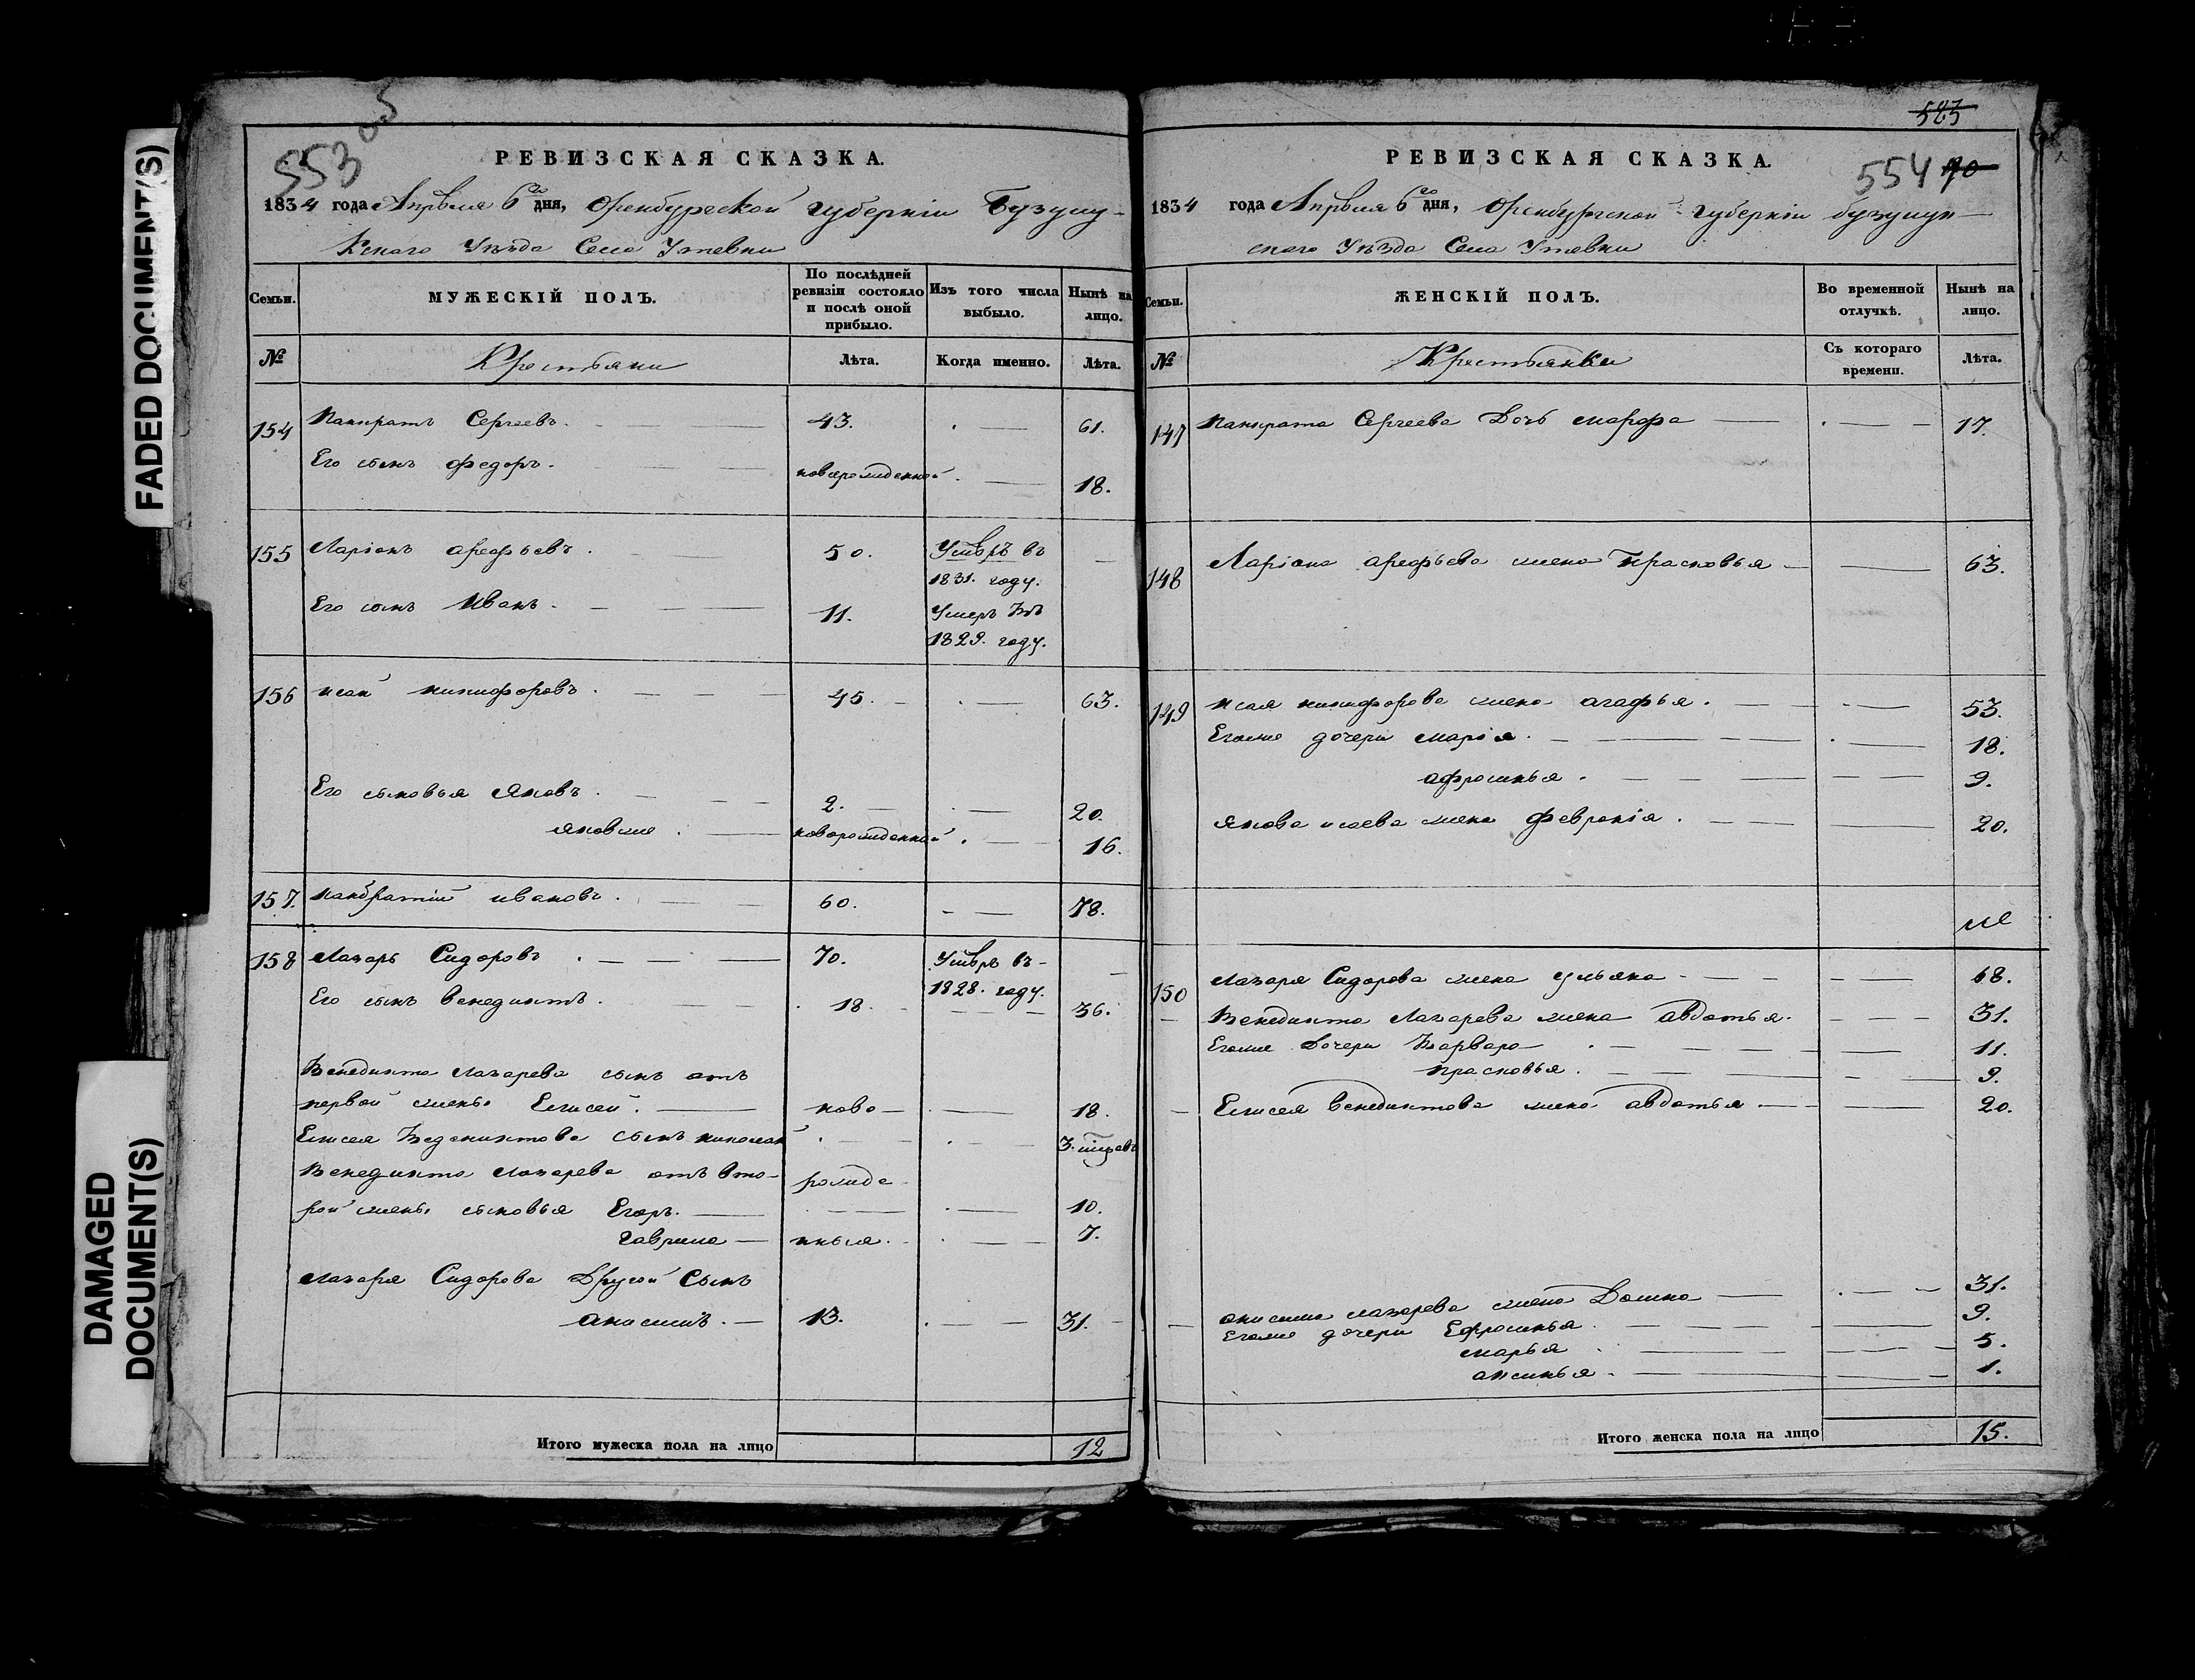 FADED DOCUMENT(S)
DAMAGED
DOCUMENT(S)
553
РЕВИЗСКАЯ СКАЗКА.
1834 года Апрѣля 6го дня, Оренбургской губерніи Бузулу-
кскаго Уѣзда Села Утевки
Семьи.
МУЖЕСКІЙ ПОЛЪ.
По послѣдней
ревизіи состояло
и послѣ оной
прибыло.
Изъ того числа
выбыло.
Нынѣ на
лицо.
№
Крестьяни
Лѣта.
Когда именно.
Лѣта.
154 Панкратъ Сергеевъ. 43. 61.
Его сынъ федоръ. новорожденной 18.
155 Ларіонъ арефьевъ. 50. Умѣръ въ
1831. году.
Его сынъ Иванъ. 11. Умеръ Въ
1829. году.
156 исай никифоровъ. 45. 63.
Его сыновья Яковъ. 2. 20.
яковже. новорожденной 16.
157. панкратій ивановъ. 60. 78.
158 Лазарь Сидоровъ. 70. Умѣръ въ
1828. году.
Его сынъ венедиктъ. 18. 36.
Венедикта лазарева сынъ отъ
первой жены Елисей. ново 18.
Елисея Ведениктова сынъ николай 3. мѣсецовъ
Венедикта Лазарева отъ вто-
рой жены сыновья Егоръ. рожде 10.
Гаврила нныя. 7.
Лазаря Сидорова Другой Сынъ
анисимъ. 13. 31.
Итого мужеска пола на лицо 12
523
РЕВИЗСКАЯ СКАЗКА.
554 70
1834 года Апрѣля 6го дня, Оренбургской губерніи бузулук-
скаго Уѣзда Села Утевки
Семьи.
ЖЕНСКІЙ ПОЛЪ.
Во временной
отлучкѣ.
Нынѣ на
лицо.
№
Крестьянки
Съ котораго
времени.
Лѣта.
147 Панкрата Сергеева Дочь марфа 17.
148 Ларіона арефьева жена Прасковья 63.
149 исая никифорова жена агафья. 53.
Егоже дочери марія. 18.
афросинья. 9.
якова исаева жена Февронія. 20.
150 Лазаря Сидорова жена ульяна 68.
Венедикта Лазарева жена авдотья. 31.
Егоже Дочери Варвара 11.
прасковья. 9.
Елисея венедиктова жена авдотья 20.
анисима лазарева жена Домна 31.
Егоже дочери Ефросинья. 9.
марья 5.
аксинья. 1.
Итого женска пола на лицо 15.